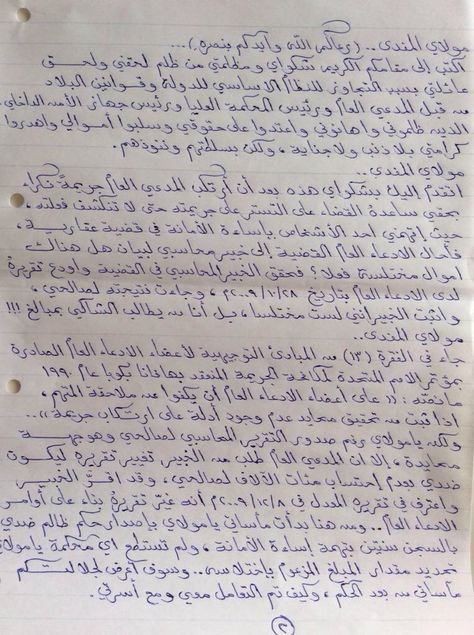 مولاي المفدى .. (رعاكم الله وأيدكم بنصره) ...
أكتب إلى مقامكم الكريم شكواي ومظلمتي من ظلم لحقني ولحق
عائلتي بسبب التجاوز للنظام الأساسي للدولة وقوانين البلاد
من قبل المدعي العام ورئيس المحكمة العليا ورئيس جهاز الأمن الداخلي
الذين ظلموني وأهانوني واعتدوا على حقوقي وسلبوا أموالي وأهدروا
كرامتي بلا ذنب ولا جناية ، ولكن بسلطتهم ونفوذهم .
مولاي المفدى ..
أتقدم إليك بشكواي هذه بعد أن ارتكب المدعي العام جريمةً نكراء
بحقي ساعده القضاء على التستر على جريمته حتى لا تنكشف فعلته ،
حيث إتهمني أحد الأشخاص بإساءة الأمانة في قضية عقارية ،
فأحال الادعاء العام القضية إلى خبير محاسبي لبيان هل هناك
أموال مختلسة أم لا ؟ فحقق الخبير المحاسبي في القضية وأودع تقريره
لدى الادعاء العام بتاريخ ٢٠٠٩/١٠/٢٨ ، وجاءت نتيجته لصالحي ،
وأثبت الخبير أنني لست مختلسا ، بل أنا من يطالب الشاكي بمبالغ !!!
مولاي المفدى ..
جاء في الفقرة (١٣) من المبادئ التوجيهية لأعضاء الادعاء العام الصادرة
بمؤتمر الأمم المتحدة لمكافحة الجريمة المنعقد بهافانا بكوبا عام ١٩٩٠
مانصّه : (( على أعضاء الادعاء العام أن يكفوا عن ملاحقة المتهم ،
إذا ثبت من تحقيق محايد عدم وجود أدلة على ارتكاب جريمة )) ..
ولكن يامولاي رغم صدور التقرير المحاسبي لصالحي ومن جهة
محايدة ، إلا أن المدعي العام طلب من الخبير تغيير تقريره ليكون
ضدي بعدم إحتساب مئات الآلاف لصالحي ، وقد أقرّ الخبير
واعترف في تقريره المعدل في ٢٠٠٩/١٢/٨م أنه غيّر تقريره بناء على أوامر
الادعاء العام .. ومن هنا بدأت مأساتي يامولاي بإصدار حكم ظالم ضدي
بالسجن سنتين بتهمة إساءة الأمانة ، ولم تستطع أي محكمة يامولاي
تحديد مقدار المبلغ المزعوم بإختلاسه .. وسوف أعرض لجلالتكم
مأساتي من بعد الحكم ، وكيف تم التعامل معي ومع أسرتي .
٢